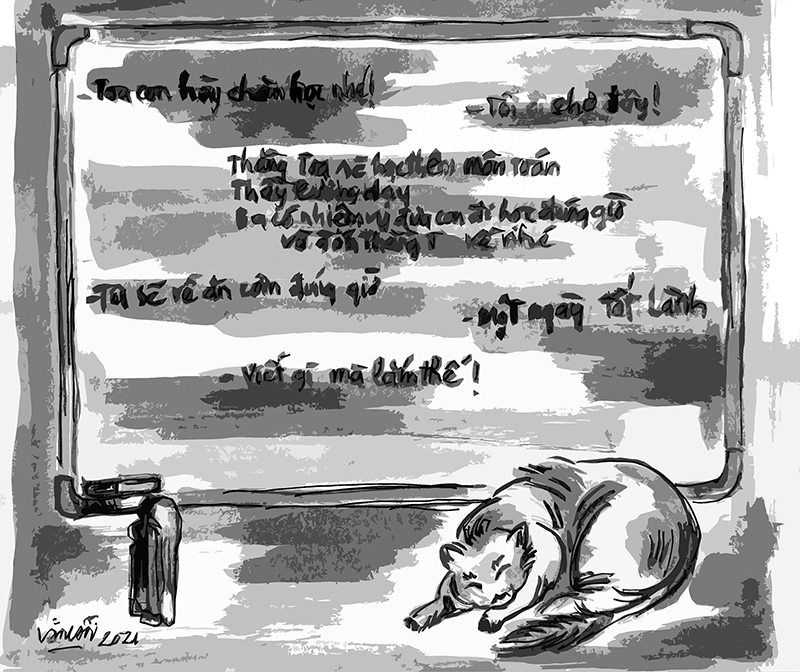 -Toa con hãy chăm học nhé!
-Tôi ở chỗ đây!
Thằng Toa sẽ học thêm môn toán
Thầy Lương dạy
Ba có nhiệm vụ đưa con đi học đúng giờ
và đón thằng T về nhé
-Toa sẽ về ăn cơm đúng giờ
-một ngày tốt lành
-Viết gì mà lắm thế!
2021